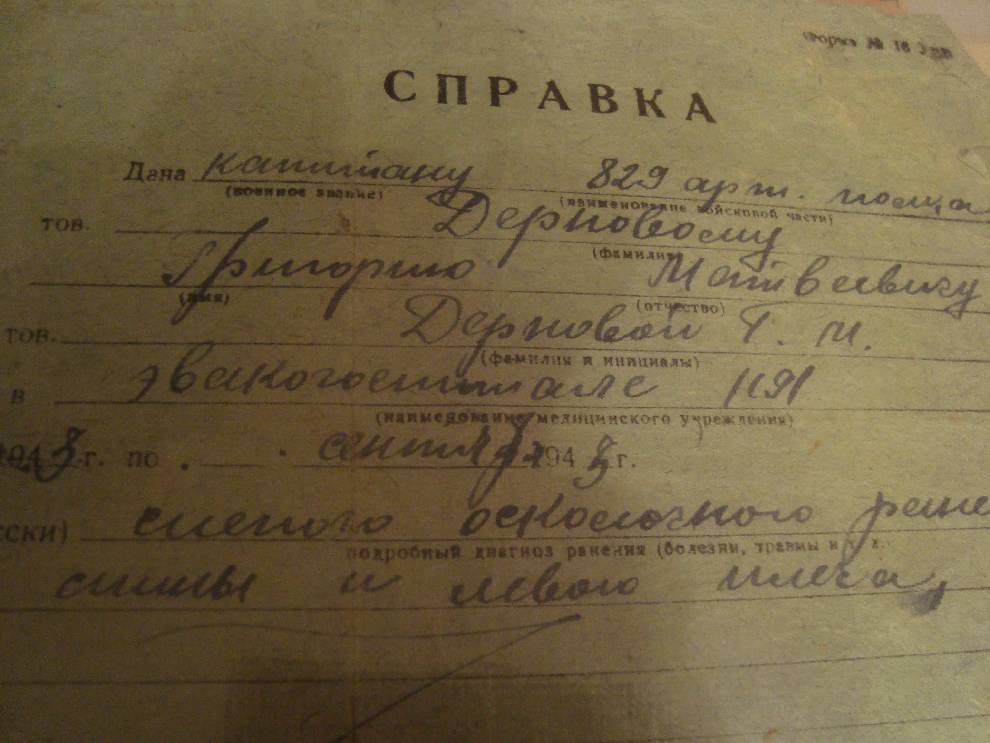 Форма № 16
СПРАВКА
Дана капитану 829 арт. полка
(военное звание) (наименование войсковой части)
тов. Дерновому
(фамилия)
Григорию Матвеевичу
(имя) (отчество)
тов. Дерновой Г. М.
(фамилия и инициалы)
в эвакогоспитале
(наименование медицинского учреждения)
1943 г. по сентябрь 1943 г.
сски) слепого осколочного ране
подробный диагноз ранения (болезни, травмы и т. д.
спины и левого плеча,